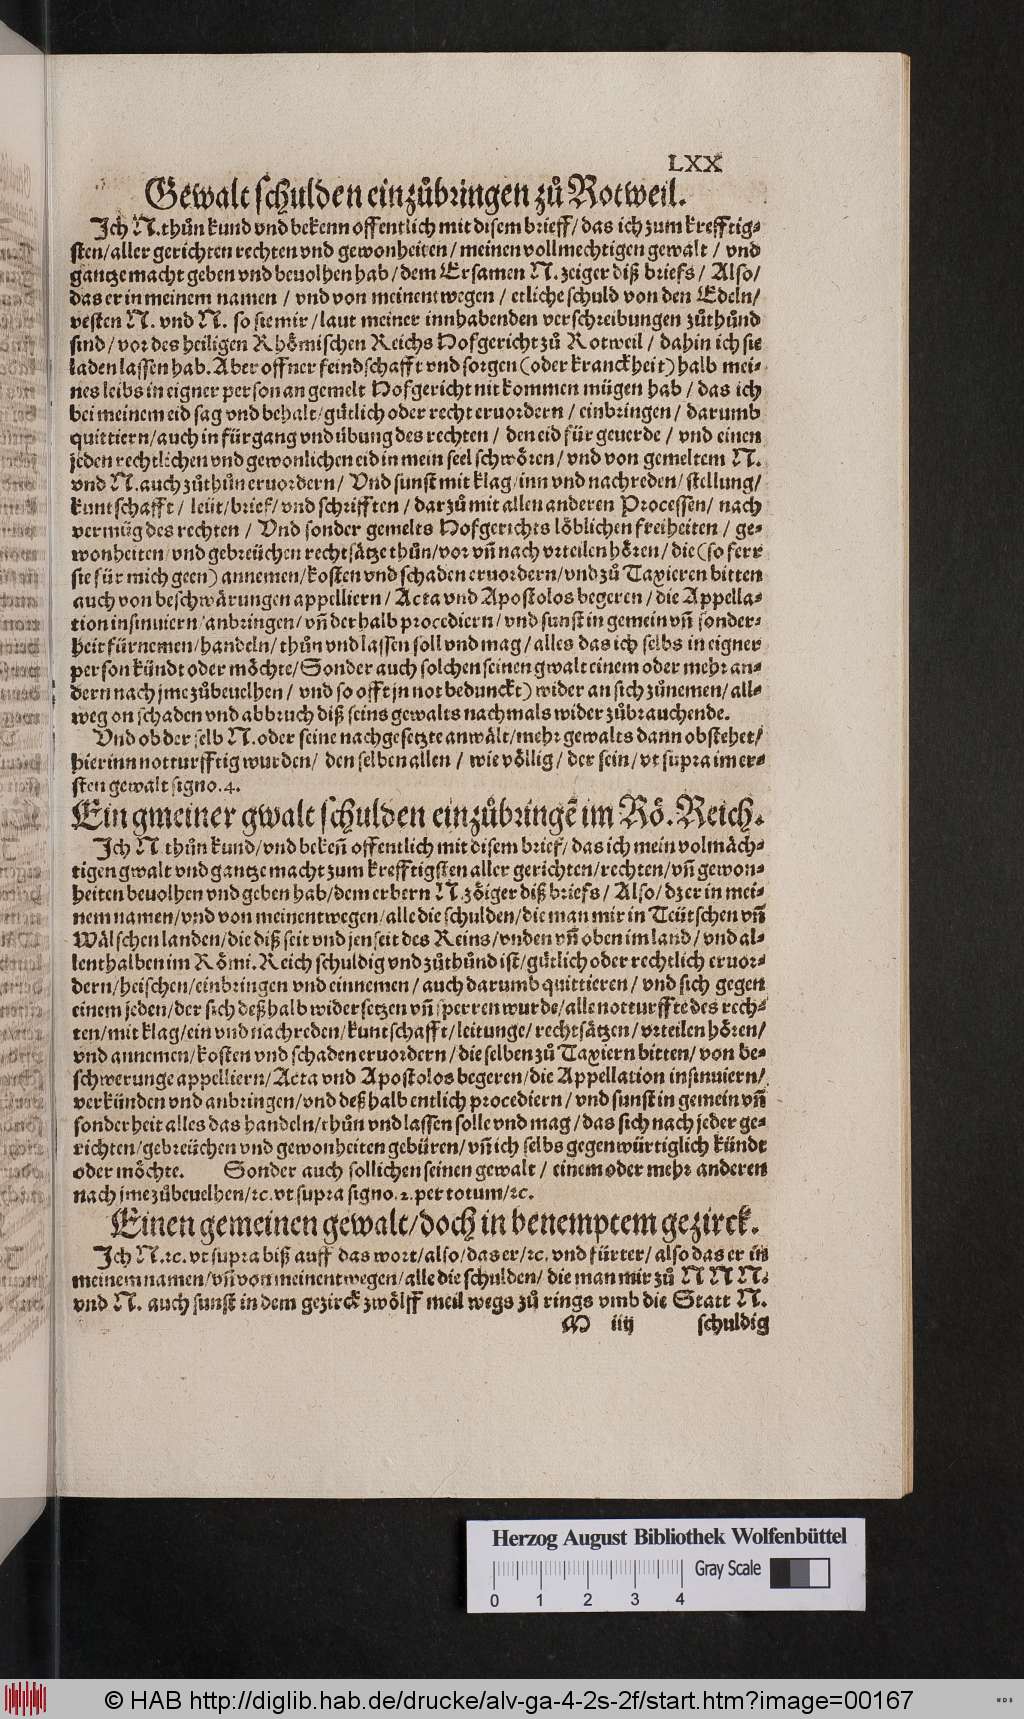 LXX
Gewalt schulden einzůbringen zů Rotweil.
Ich N. thůn kund vnd bekenn offentlich mit disem brieff/ das ich zum krefftig-
sten/ aller gerichten rechten vnd gewonheiten/ meinen vollmechtigen gewalt/ vnd
gantze macht geben vnd beuolhen hab/ dem Ersamen N. zeiger diß briefs/ Also/
das er in meinem namen/ vnd von meinent wegen/ etliche schuld von den Edeln/
vesten N. vnd N. so sie mir/ laut meiner innhabenden verschreibungen zůthůnd
sind/ vor des heiligen Rhömischen Reichs Hofgericht zů Rotweil/ dahin ich sie
laden lassen hab. Aber offner feindschafft vnd sorgen (oder kranckheit) halb mei-
nes leibs in eigner person an gemelt Hofgericht nit kommen mügen hab/ das ich
bei meinem eid sag vnd behalt/ gütlich oder recht eruordern/ einbringen/ darumb
quittiern/ auch in fürgang vnd übung des rechten/ den eid für geuerde/ vnd einen
jeden rechtlichen vnd gewonlichen eid in mein seel schwören/ vnd von gemeltem N.
vnd N. auch zůthůn eruordern/ Vnd sunst mit klag/ inn vnd nachreden/ stellung/
kuntschafft/ leüt/ brief/ vnd schrifften/ darzů mit allen anderen Processen/ nach
vermüg des rechten/ Vnd sonder gemelts Hofgerichts löblichen freiheiten/ ge-
wonheiten/ vnd gebreüchen rechtsätze thůn/ vor vñ nach vrteilen hören/ die (so ferr
sie für mich geen) annemen/ kosten vnd schaden eruordern/ vnd zů Taxieren bitten
auch von beschwärungen appelliern/ Acta vnd Apostolos begeren/ die Appella-
tion insinuiern/ anbringen/ vñ derhalb procediern/ vnd sunst in gemein vñ sonder-
heit fürnemen/ handeln/ thůn vnd lassen soll vnd mag/ alles das ich selbs in eigner
person kündt oder möchte/ Sonder auch solchen seinen gwalt einem oder mehr an-
dern nach jme zůbeuelhen/ vnd so offt jn not bedunckt) wider an sich zůnemen/ all-
weg on schaden vnd abbruch diß seins gewalts nachmals wider zůbrauchende.
Vnd ob der selb N. oder seine nachgesetzte anwält/ mehr gewalts dann obstehet/
hierinn notturfftig wurden/ den selben allen/ wie völlig/ der sein/ vt supra im er-
sten gewalt signo. 4.
Ein gmeiner gwalt schulden einzůbringē im Rö. Reich.
Ich N. thůn kund/ vnd bekeñ offentlich mit disem brief/ das ich mein volmäch-
tigen gwalt vnd gantze macht zum krefftigsten aller gerichten/ rechten/ vñ gewon-
heiten beuolhen vnd geben hab/ dem erbern N. zöiger diß briefs/ Also/ dz er in mei-
nem namen/ vnd von meinent wegen/ alle die schulden/ die man mir in Teütschen vñ
Wälschen landen/ die diß seit vnd jenseit des Reins/ vnden vñ oben im land/ vnd al-
lenthalben im Römi. Reich schuldig vnd zůthůnd ist/ gütlich oder rechtlich eruor-
dern/ heischen/ einbringen vnd einnemen/ auch darumb quittieren/ vnd sich gegen
einem jeden/ der sich deßhalb widersetzen vñ sperren wurde/ alle notturffte des rech-
ten/ mit klag/ ein vnd nachreden/ kuntschafft/ leitunge/ rechtsätzen/ vrteilen hören/
vnd annemen/ kosten vnd schaden eruordern/ die selben zů Taxiern bitten/ von be-
schwerunge appelliern/ Acta vnd Apostolos begeren/ die Appellation insinuiern/
verkünden vnd anbringen/ vnd deßhalb entlich procediern/ vnd sunst in gemein vñ
sonderheit alles das handeln/ thůn vnd lassen solle vnd mag/ das sich nach jeder ge-
richten/ gebreüchen vnd gewonheiten gebüren/ vñ ich selbs gegenwürtiglich kündt
oder möchte. Sonder auch sollichen seinen gewalt/ einem oder mehr anderen
nach jme zůbeuelhen/ ꝛc. vt supra signo. 2. per totum/ ꝛc.
Einen gemeinen gewalt/ doch in benemptem gezirck.
Ich N. ꝛc. vt supra biß auff das wort/ also/ das er/ ꝛc. vnd fürter/ also das er in
meinem namen/ vñ von meinent wegen/ alle die schulden/ die man mir zů N N N.
vnd N. auch sunst in dem gezirck zwölff meil wegs zů rings vmb die Statt N.
M iiij schuldig
Herzog August Bibliothek Wolfenbüttel
Gray Scale
0 1 2 3 4
© HAB http://diglib.hab.de/drucke/alv-ga-4-2s-2f/start.htm?image=00167